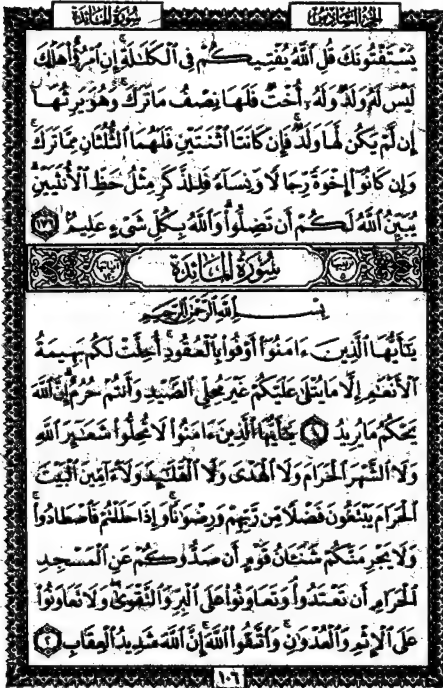 الجزء السادس
سورة المائدة
يَسْتَفْتُونَكَ قُلِ ٱللَّهُ يُفْتِيكُمْ فِى ٱلْكَلَـٰلَةِ ۚ إِنِ ٱمْرُؤٌا۟ هَلَكَ
لَيْسَ لَهُۥ وَلَدٌ وَلَهُۥٓ أُخْتٌ فَلَهَا نِصْفُ مَا تَرَكَ ۚ وَهُوَ يَرِثُهَآ
إِن لَّمْ يَكُن لَّهَا وَلَدٌ ۚ فَإِن كَانَتَا ٱثْنَتَيْنِ فَلَهُمَا ٱلثُّلُثَانِ مِمَّا تَرَكَ ۚ
وَإِن كَانُوٓا۟ إِخْوَةً رِّجَالًا وَنِسَآءً فَلِلذَّكَرِ مِثْلُ حَظِّ ٱلْأُنثَيَيْنِ ۗ
يُبَيِّنُ ٱللَّهُ لَكُمْ أَن تَضِلُّوا۟ ۗ وَٱللَّهُ بِكُلِّ شَىْءٍ عَلِيمٌۢ ١٧٦
سُورَةُ المَائدَة
بِسْمِ ٱللَّهِ ٱلرَّحْمَـٰنِ ٱلرَّحِيمِ
يَـٰٓأَيُّهَا ٱلَّذِينَ ءَامَنُوٓا۟ أَوْفُوا۟ بِٱلْعُقُودِ ۚ أُحِلَّتْ لَكُم بَهِيمَةُ
ٱلْأَنْعَـٰمِ إِلَّا مَا يُتْلَىٰ عَلَيْكُمْ غَيْرَ مُحِلِّى ٱلصَّيْدِ وَأَنتُمْ حُرُمٌ ۗ إِنَّ ٱللَّهَ
يَحْكُمُ مَا يُرِيدُ ١ يَـٰٓأَيُّهَا ٱلَّذِينَ ءَامَنُوا۟ لَا تُحِلُّوا۟ شَعَـٰٓئِرَ ٱللَّهِ
وَلَا ٱلشَّهْرَ ٱلْحَرَامَ وَلَا ٱلْهَدْىَ وَلَا ٱلْقَلَـٰٓئِدَ وَلَآ ءَآمِّينَ ٱلْبَيْتَ
ٱلْحَرَامَ يَبْتَغُونَ فَضْلًا مِّن رَّبِّهِمْ وَرِضْوَٰنًا ۚ وَإِذَا حَلَلْتُمْ فَٱصْطَادُوا۟ ۚ
وَلَا يَجْرِمَنَّكُمْ شَنَـَٔانُ قَوْمٍ أَن صَدُّوكُمْ عَنِ ٱلْمَسْجِدِ
ٱلْحَرَامِ أَن تَعْتَدُوا۟ ۘ وَتَعَاوَنُوا۟ عَلَى ٱلْبِرِّ وَٱلتَّقْوَىٰ ۖ وَلَا تَعَاوَنُوا۟
عَلَى ٱلْإِثْمِ وَٱلْعُدْوَٰنِ ۚ وَٱتَّقُوا۟ ٱللَّهَ ۖ إِنَّ ٱللَّهَ شَدِيدُ ٱلْعِقَابِ ٢
١٠٦